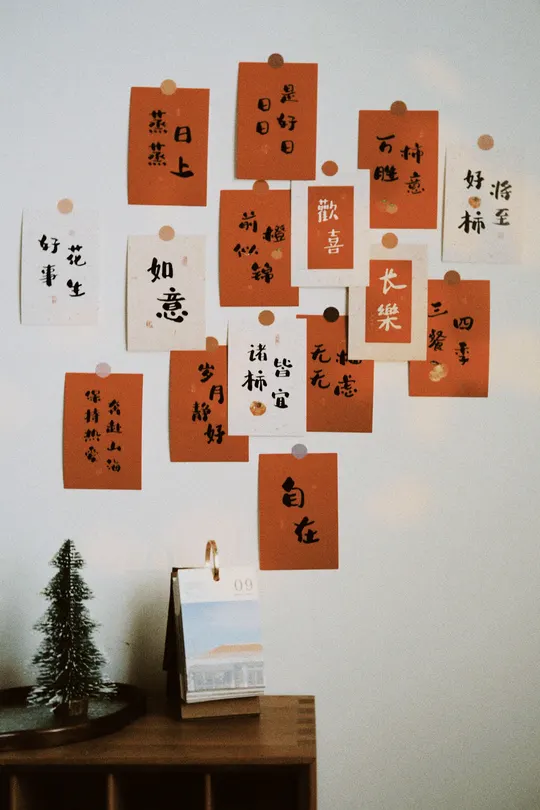 日日
是好日
蒸蒸
日上
万柿
胜意
好柿
将至
歡喜
前橙
似锦
好事
花生
如意
长樂
三餐
四季
诸柿
皆宜
无
无虑
岁月
静好
保持热爱
奔赴山海
自在
09